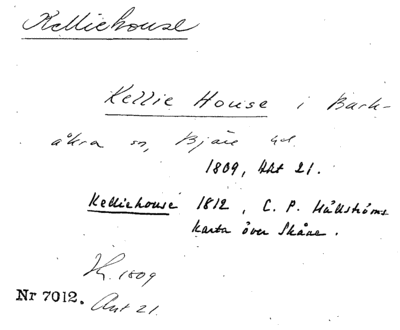 Kelliehouse
Kellie House i Bark-
åkra sn, Bjäre hd.
1809, Akt 21.
Kelliehouse 1812, C. P. Hällströms
karta över Skåne.
1809
Nr 7012. Akt 21.